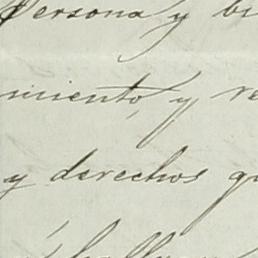 Persona y bi
miento, y re
y derechos qu